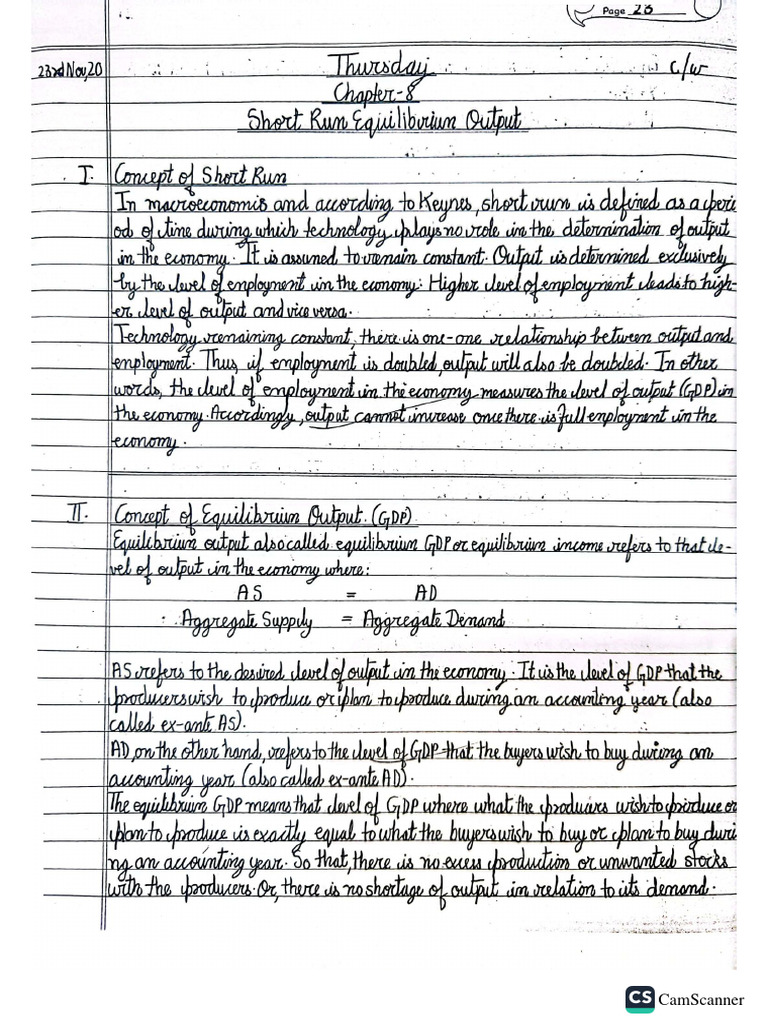 Page 23
23rd Nov,20 Thursday c/w
Chapter-8
Short Run Equilibrium Output
I. Concept of Short Run
In macroeconomis and according to Keynes, short run is defined as a peri
od of time during which technology plays no role in the determination of output
in the economy. It is assumed to remain constant. Output is determined exclusively
by the level of employment in the economy: Higher level of employment leads to high-
er level of output and vice versa.
Technology remaining constant, there is one-one relationship between output and
employment. Thus, if employment is doubled, output will also be doubled. In other
words, the level of employment in the economy measures the level of output (GDP) in
the economy. Accordingly, output cannot increase once there is full employment in the
economy.
II. Concept of Equilibrium Output. (GDP)
Equilibrium output also called equilibrium GDP or equilibrium income refers to that le-
vel of output in the economy where:
AS = AD
: Aggregate Supply = Aggregate Demand
AS refers to the desired level of output in the economy. It is the level of GDP that the
producers wish to produce or plan to produce during an accounting year (also
called ex-ante AS).
AD, on the other hand, refers to the level of GDP that the buyers wish to buy during an
accounting year (also called ex-ante AD).
The equilibrium GDP means that level of GDP where what the producers wish to produce or
plan to produce is exactly equal to what the buyers wish to buy or plan to buy duri
ng an accounting year. So that, there is no excess production or unwanted stocks
with the producers. Or, there is no shortage of output in relation to its demand.
CS CamScanner